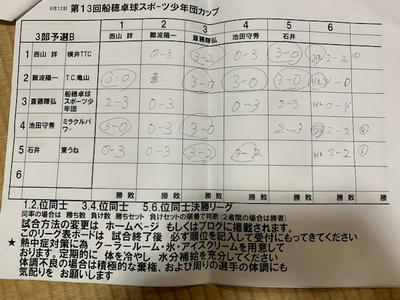 8月12日 第13回船穂卓球スポーツ少年団カップ
3部予選B
1 2 3 4 5 6
西山 詳 難波陽一 斎藤輝弘 池田守秀 石井
1 西山 詳 横井TTC 0-3 3-2 0-3 3-0 2-2
2 難波陽一 T.C.亀山 3-0 3-0 3-0 3-0 4-0
3 斎藤輝弘 船穂卓球スポーツ少年団 2-3 0-3 0-3 2-3 0-4
4 池田守秀 ミラクルパワー 3-0 0-3 3-0 2-3
5 石井 東うね 0-3 0-3 3-2 3-2 2-2
6
勝 敗 勝 敗 勝 敗 勝 敗 勝 敗 勝 敗
1.2.位同士 3.4.位同士 5.6.位同士決勝リーグ
同率の場合は 勝ち数 負け数 勝ちセット 負けセットの順番で判断(2者間の場合は勝者)
試合方法の変更は ホームページ もしくはブログに掲載されます。
このリーグ表ボードは 試合終了後 必ず順位を記入して受付にもってきてください
★ 熱中症対策に為 クーラールーム・氷・アイスクリームを用意して
おります。定期的に 体を冷やし 水分補給を充分してください
体調不良の場合は積極的な棄権、および周りの選手の体調にも
気配りを お願いします